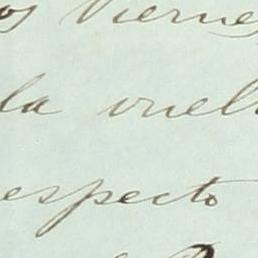 os Viernes
la vuelt
especto